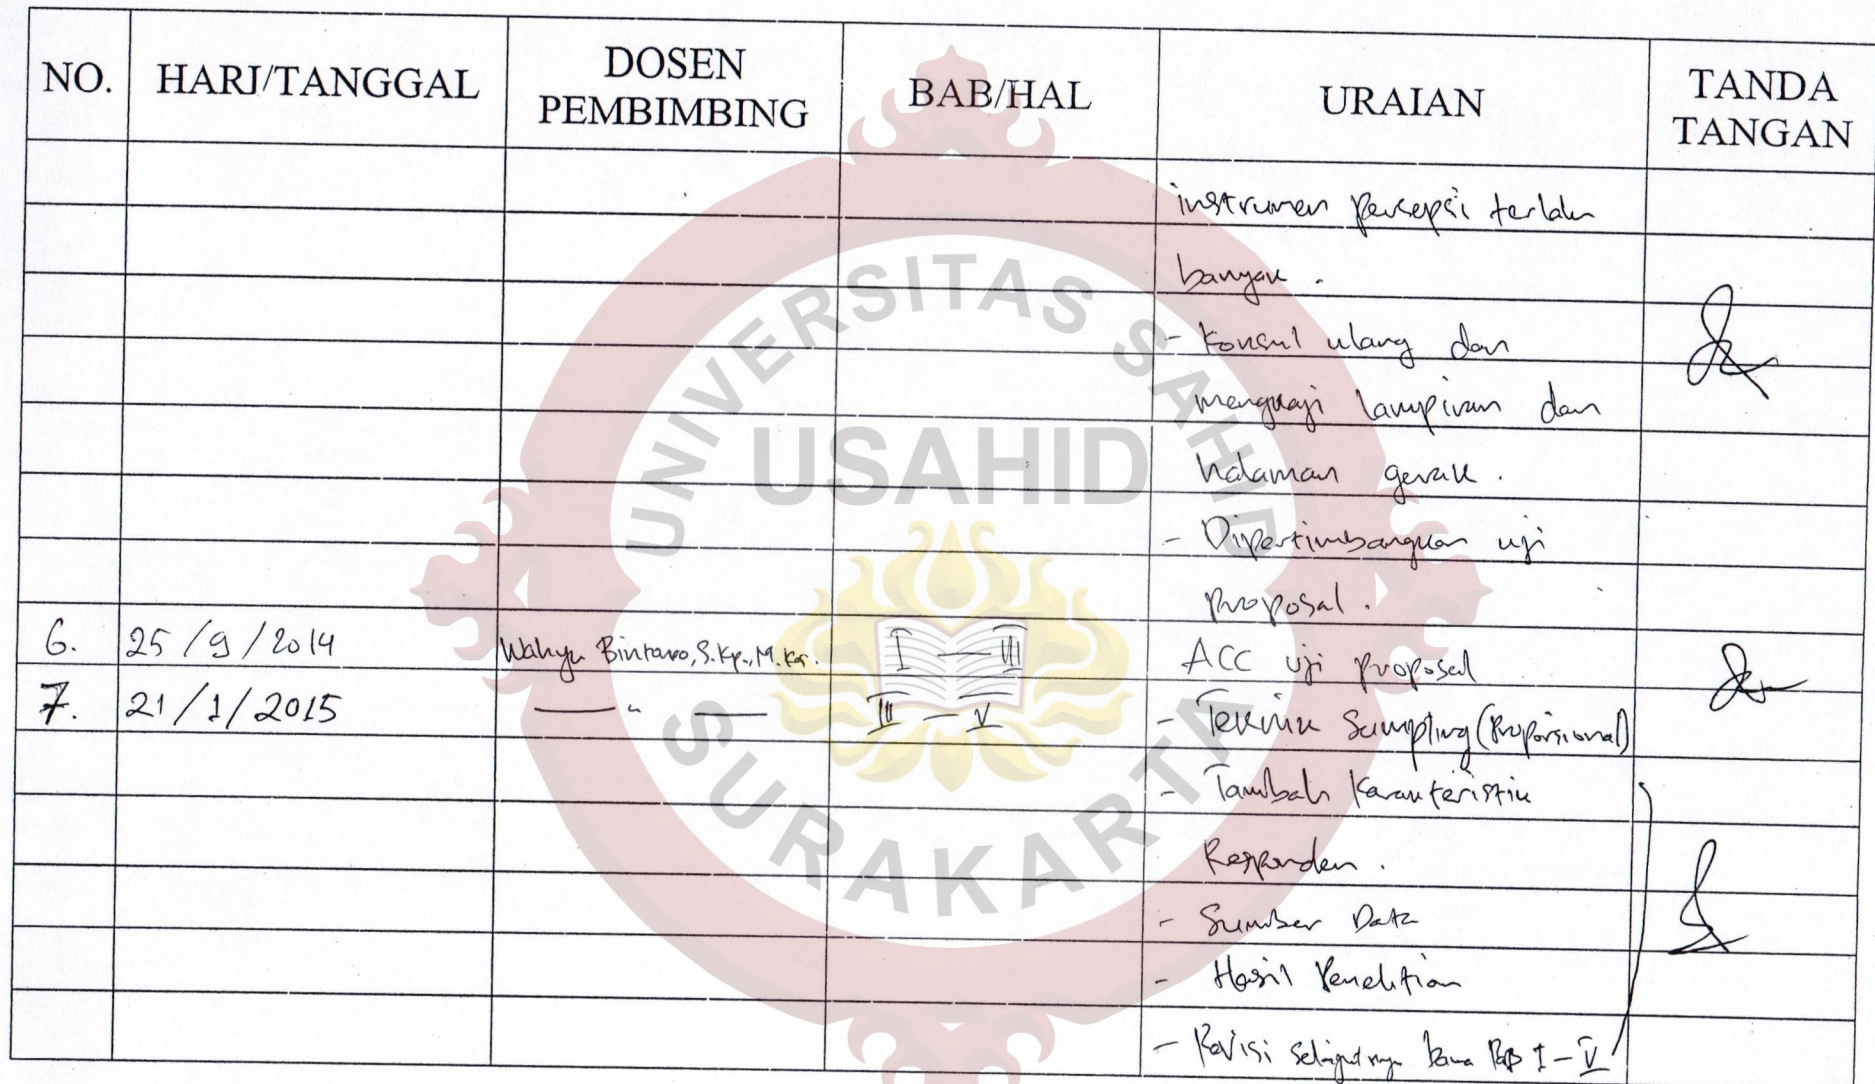 NO. HARI/TANGGAL DOSEN PEMBIMBING BAB/HAL URAIAN TANDA TANGAN
instrumen persepsi terlalu
banyak .
- Konsul ulang dan
mengkaji lampiran dan
halaman gerak .
- Dipertimbangkan uji
proposal .
6. 25/9/2014 Wahyu Bintoro, S.Kp., M.Kes. I — III ACC uji proposal
7. 21/1/2015 — " — III — V - Teknik Sampling (Proporsional)
- Tambah Karakteristik
Responden .
- Sumber Data
- Hasil Penelitian
- Revisi selanjutnya bawa Bab I - V
UNIVERSITAS SAHID
USAHID
SURAKARTA